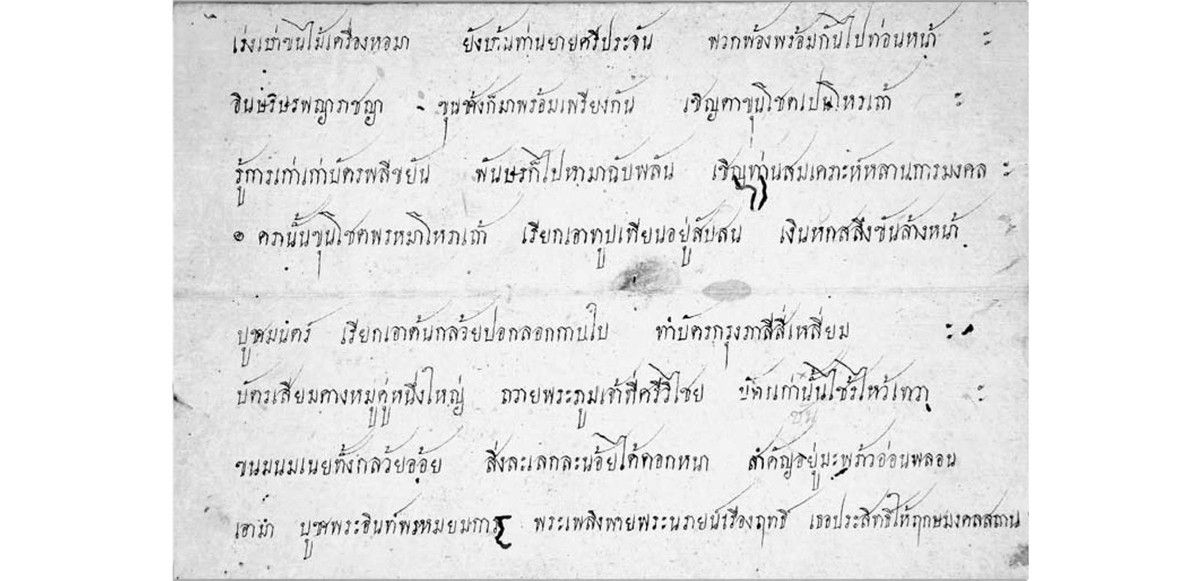 เร่งเข้าขนไม้เครื่องหอมา ยังบ้านท่านยายศรีประจัน พวกพ้องพร้อมกันไปท่อนหน้า ะ
อินษริษรพญาราชญา ขุนชังก็มาพร้อมเพรียงกัน เชิญตาขุนโชตเปนโหรเถ้า ะ
รู้การเก่าเก่าบัตรพลีขยัน พันษรก็ไปหามาฉับพลัน เชิญท่านสมเคราะห์หลานการมงคล ะ
๏ ครานั้นขุนโชตพรหมาโหราเถ้า เรียกเอาทูปเทียนอยู่สับสน เงินหกสลึงขันล้างหน้า
บูชามนตร์ เรียกเอาต้นกล้วยปอกลอกกาบใบ ทำบัตรกรุงภาลีสี่เหลี่ยม ะ
บัตรเสียมคางหมูคู่หนึ่งใหญ่ ถวายพระภูมเจ้าที่ศรีวิไชย บัตรเก่านั้นใช้ไหว้เทวา ะ
ขนมนมเนยทั้งกล้วยอ้อย สิ่งละเลกละน้อยใต้ดอกหนา สำคัญอยู่มะพร้าวอ่อนพลอน
เอามา บูชาพระอินท์พรหมยมการ พระเพลิงพายพระนรายน์เรืองฤทธิ์ เธอประสิทธิ์ให้ฤกษมงคลสถาน